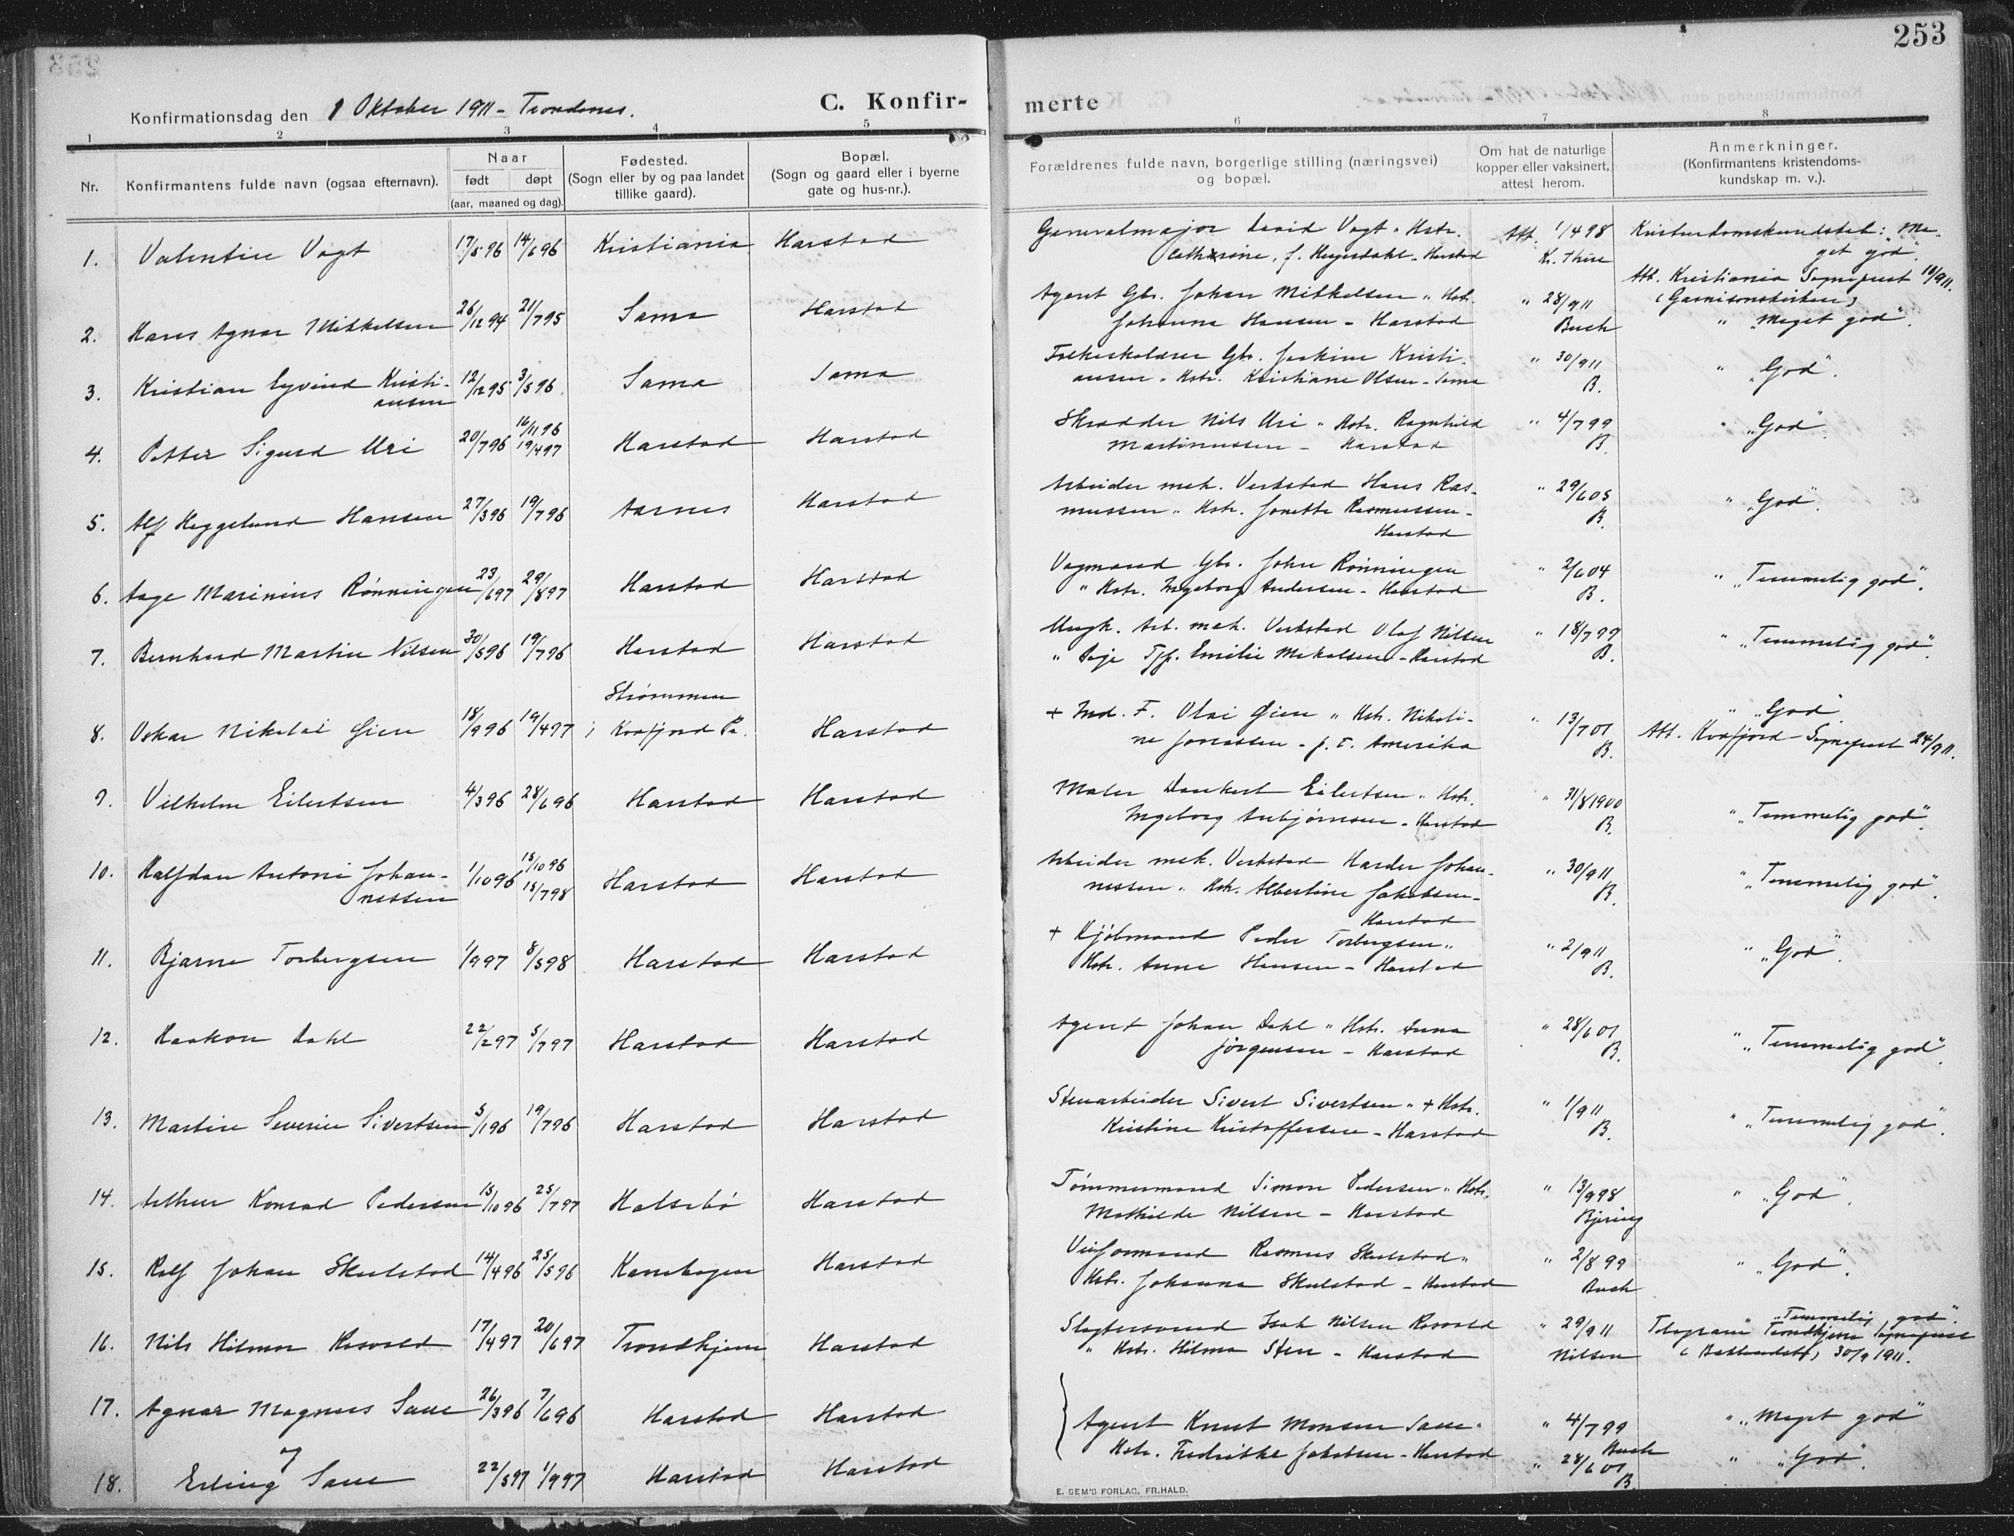 253
Konfirmationsdag den 1 Oktober 1911 - Trondenes.
C. Konfir-
merte
1 2 3 4 5 6 7 8
Nr.
Konfirmantens fulde navn (ogsaa efternavn).
Naar
født døpt
(aar, maaned og dag).
Fødested.
(Sogn eller by og paa landet
tillike gaard).
Bopæl.
(Sogn og gaard eller i byerne
gate og hus-nr.).
Forældrenes fulde navn, borgerlige stilling (næringsvei)
og bopæl.
Om hat de naturlige
kopper eller vaksinert,
attest herom.
Anmerkninger.
(Konfirmantens kristendoms-
kundskap m. v.).
1. Valentin Vogt 17/5 96 14/6 96 Kristiania Harstad Generalmajor David Vogt " Hstr. Att. 1/4 98 Kristendomskundskab: Me-
Cathrine, f. - Harstad Kr. Thue get god".
Att. Kristiania Sogneprest 10/9 11.
(Garnisonskirken)
2. Hans Agnar Mikkelsen 26/12 94 21/7 95 Sama Harstad Agent Gbr. Johan Mikkelsen " Hstr. " 28/9 11
Johanna Hansen - Harstad Buch " "Meget god".
3. Kristian Eyvind Kristi- 12/12 95 3/5 96 Sama Sama Folkeskolelærer Gbr. Joakim Kristi- " 30/9 11 " "God".
ansen ansen " Hstr. Kristiane Olsen - Sama B.
4. Petter Sigurd Uri 20/7 96 16/11 96 Harstad Harstad Skrædder Nils Uri " Hstr. Ragnhild " 4/7 99 " "God".
19/4 97 Martinussen - Harstad B.
5. Alf Heggelund Hansen 27/3 96 19/7 96 Aarnes Harstad Arbeider mek. Verksted Hans Ras- " 29/6 05 " "God".
mussen " Hstr. Jonette Rasmussen - B.
Harstad
6. Aage Marinius Rønningen 23/6 97 29/8 97 Harstad Harstad Vognmand Gbr. John Rønningen " 2/6 04 " "Temmelig god".
" Hstr. Ingeborg Andersen - Harstad B.
7. Bernhard Martin Nilsen 30/5 96 19/7 96 Harstad Harstad Ungk. Arb. mek. Verksted Olaf Nilsen " 18/7 99 " "Temmelig god".
" Pige Tjp. Emilie Mikalsen - Harstad B.
8. Oskar Nikolai Øien 18/9 96 19/4 97 Strømmen
i Kvæfjord Pr. Harstad + Ind. F. Olai Øien " Hstr. Nikoli- " 13/7 01 " "God".
ne Jonassen - p. t. Amerika B. Att. Kvæfjord Sogneprest 24/9 11.
9. Vilhelm Eilertsen 4/3 96 28/6 96 Harstad Harstad Maler Dankert Eilertsen " Hstr. " 31/8 1900 " "Temmelig god".
Ingeborg Anbjørnsen - Harstad B.
10. Halfdan Antoni Johan- 1/10 96 15/10 96 Harstad Harstad Arbeider mek. Verksted Harder Johan- " 30/9 11 " "Temmelig god".
nessen 15/7 98 nessen " Hstr. Albertine Jakobsen - B.
Harstad
11. Bjarne Torbergsen 1/9 97 8/5 98 Harstad Harstad + Kjølmand Peder Torbergsen " " 2/9 11 " "God".
Hstr. Anne Hansen - Harstad B.
12. Haakon Dahl 22/2 97 5/7 97 Harstad Harstad Agent Johan Dahl " Hstr. Anna " 28/6 01 " "Temmelig god".
Jørgensen - Harstad B.
13. Martin Severin Sivertsen 5/1 96 19/7 96 Harstad Harstad Stenarbeider Sivert Sivertsen " + Hstr. " 1/9 11 " "Temmelig god".
Kristine Kristoffersen - Harstad B.
14. Arthur Konrad Pedersen 15/10 96 25/7 97 Halsebø Harstad Tømmermand Simon Pedersen " Hstr. " 13/9 98 " "God".
Mathilde Nilsen - Harstad Bjering
15. Rolf Johan Skulstad 14/4 96 25/5 96 Kanebogen Harstad Rasmus Skulstad " " 2/8 99 " "God".
Hstr. Johanna Skulstad - Harstad Buch
16. Nils Hilmar Rosvold 17/4 97 20/6 97 Trondhjem Harstad Slagtersvend Isak Nilsen Rosvold " 29/9 11 " "Temmelig god".
" Hstr. Hilma Sten - Harstad Nilsen Telegram Trondhjem Sogneprest
(Baklandet) 30/9 1911.
17. Agnar Magnus Saue 26/3 96 7/6 96 Harstad Harstad Agent Knut Monsen Saue " " 4/7 99 " "Meget god"
Hstr. Fredrikke Jakobsen - Harstad Buch
18. Erling Saue 22/5 97 1/9 97 Harstad Harstad " 28/6 01 " "God".
B.
E. SEM'S FORLAG, FR.HALD.